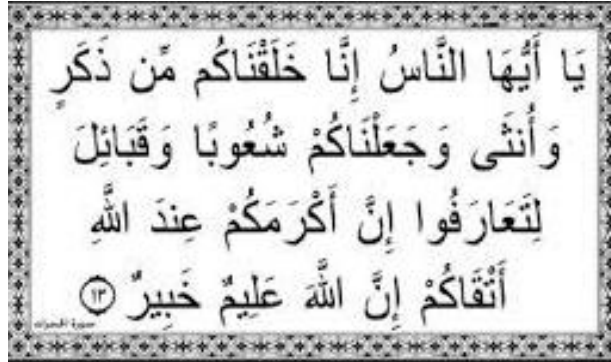 يَا أَيُّهَا النَّاسُ إِنَّا خَلَقْنَاكُم مِّن ذَكَرٍ
وَأُنثَى وَجَعَلْنَاكُمْ شُعُوبًا وَقَبَائِلَ
لِتَعَارَفُوا إِنَّ أَكْرَمَكُمْ عِندَ اللَّهِ
أَتْقَاكُمْ إِنَّ اللَّهَ عَلِيمٌ خَبِيرٌ ١٣
سورة الحجرات